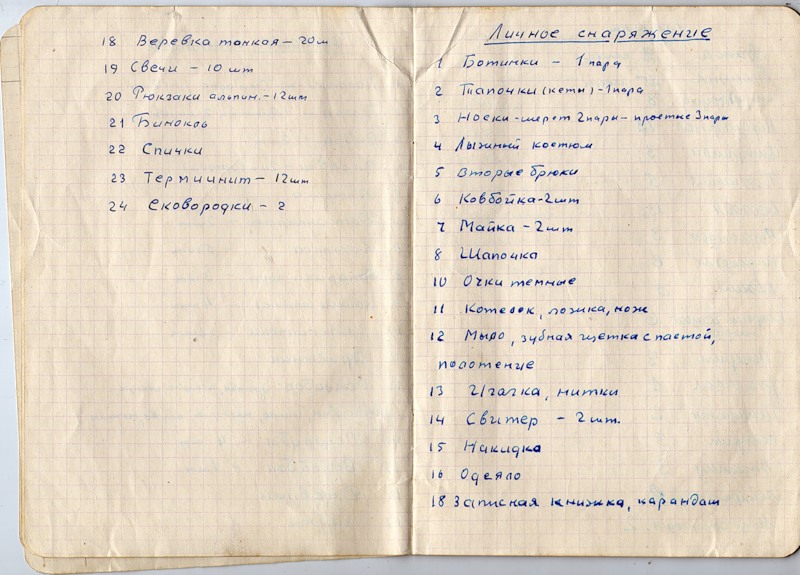 18 Веревка тонкая – 20м
19 Свечи – 10 шт
20 Рюкзаки альпин. – 12шт
21 Бинокль
22 Спички
23 – 12шт
24 Сковородки – 2
Личное снаряжение
1 Ботинки – 1 пара
2 Тапочки (кеты) – 1 пара
3 Носки – шерст 2 пары – простые 3 пары
4 Лыжный костюм
5 Вторые брюки
6 Ковбойка – 2 шт
7 Майка – 2 шт
8 Шапочка
10 Очки темные
11 Котелок, ложка, нож
12 Мыло, зубная щетка с пастой,
полотенце
13 Иголка, нитки
14 Свитер – 2 шт.
15 Накидка
16 Одеяло
18 Записная книжка, карандаш